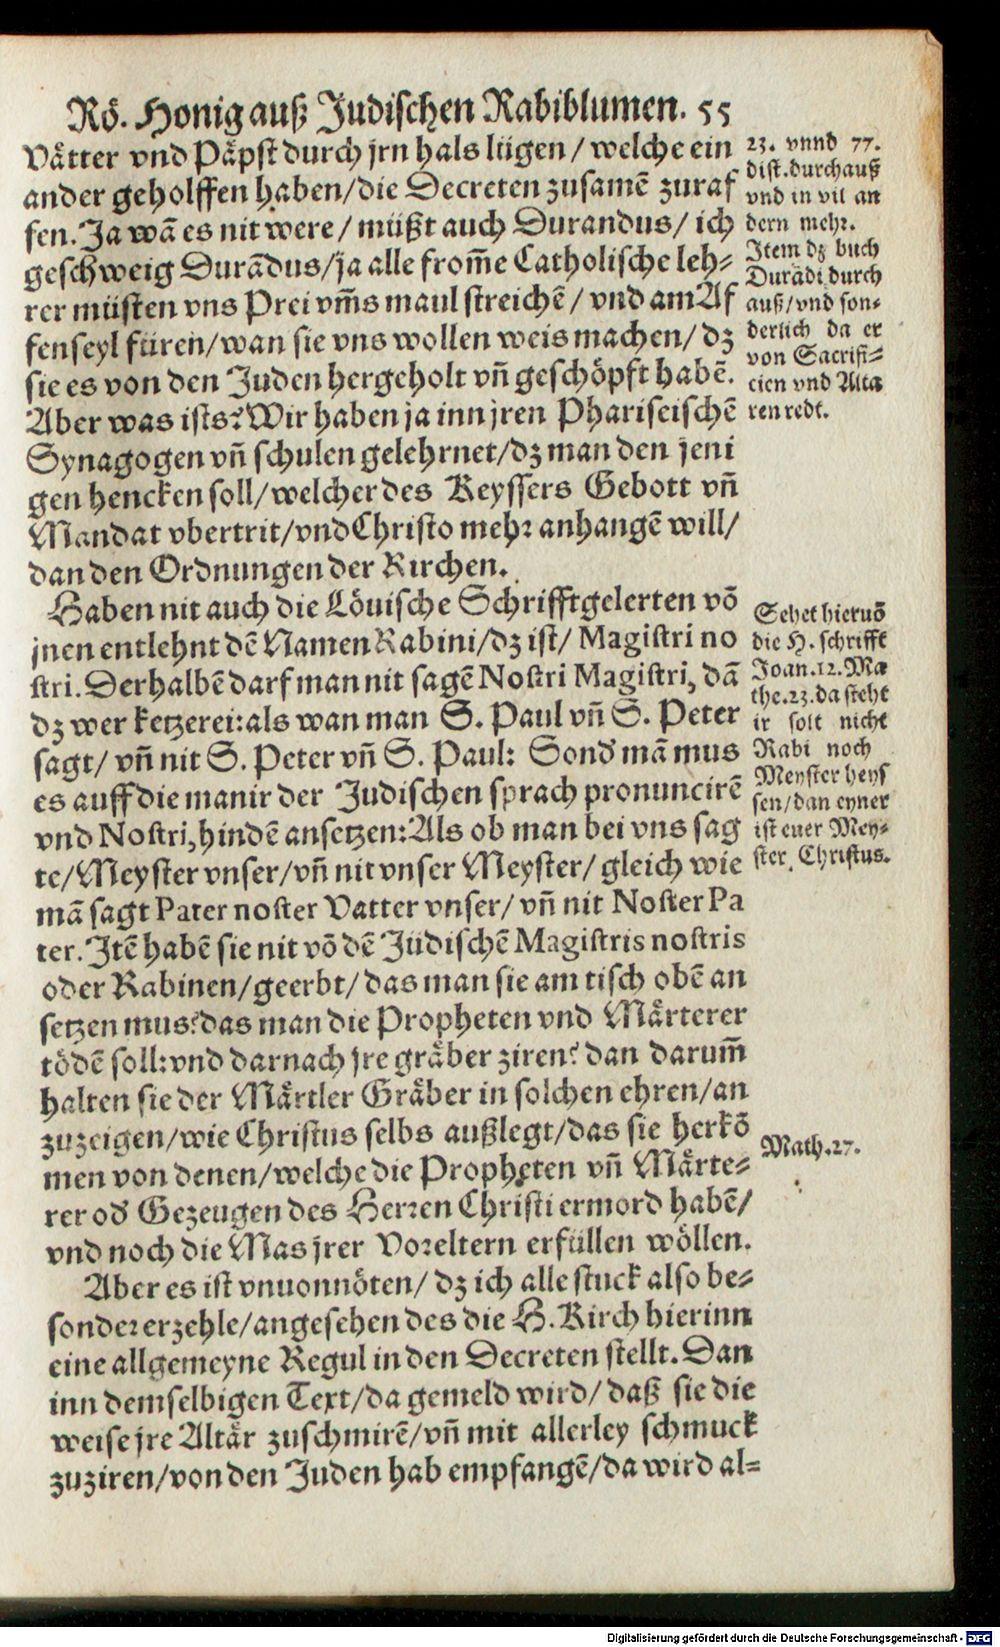 Rö. Honig auß Judischen Rabiblumen. 55
Vätter vnd Päpst durch jrn hals liigen / welche ein
ander geholffen haben / die Decreten zusamē zuraf
fen. Ja wā es nit were / müßt auch Durandus / ich
geschweig Durādus / ja alle from̄e Catholische leh-
rer müsten vns Prei vm̄s maul streichē / vnd am Af
fenseyl füren / wan sie vns wollen weis machen / dz
sie es von den Juden hergeholt vn̄ geschöpft habē.
Aber was ists? Wir haben ja inn jren Phariseischē
Synagogen vn̄ schulen gelehrnet / dz man den jeni
gen hencken soll / welcher des Keyssers Gebott vn̄
Mandat vbertrit / vnd Christo mehr anhangē will /
dan den Ordnungen der Kirchen.
Haben nit auch die Löuische Schrifftgelerten vō
jnen entlehnt dē Namen Rabini / dz ist / Magistri no
stri. Derhalbē darf man nit sagē Nostri Magistri, dā
dz wer ketzerei: als wan man S. Paul vn̄ S. Peter
sagt / vn̄ nit S. Peter vn̄ S. Paul: Sond' mā mus
es auff die manir der Judischen sprach pronuncirē
vnd Nostri, hindē ansetzen: Als ob man bei vns sag
te / Meyster vnser / vn̄ nit vnser Meyster / gleich wie
mā sagt Pater noster Vatter vnser / vn̄ nit Noster Pa
ter. Itē habē sie nit vō dē Jüdischē Magistris nostris
oder Rabinen / geerbt / das man sie am tisch obē an
setzen mus? das man die Propheten vnd Märterer
tödē soll: vnd darnach jre gräber ziren? dan darum̄
halten sie der Märtler Gräber in solchen ehren / an
zuzeigen / wie Christus selbs außlegt / das sie herkō
men von denen / welche die Propheten vn̄ Märte-
rer od' Gezeugen des Herren Christi ermord habē /
vnd noch die Mas jrer Voreltern erfüllen wöllen.
Aber es ist vnuonnöten / dz ich alle stuck also be-
sonder erzehle / angesehen des die H. Kirch hierinn
eine allgemeyne Regul in den Decreten stellt. Dan
inn demselbigen Text / da gemeld wird / daß sie die
weise jre Altär zuschmirē / vn̄ mit allerley schmuck
zuziren / von den Juden hab empfangē / da wird al-
23. vnnd 77.
dist. durchauß
vnd in vil an
dern mehr.
Item dz buch
Durādi durch
auß / vnd son-
derlich da er
von Sacrifi-
cien vnd Alta
ren redt.
Sehet hieruō
die H. schrifft
Joan. 12. Ma
the. 23. da steht
ir solt nicht
Rabi noch
Meyster heys
sen / dan eyner
ist euer Mey-
ster, Christus.
Math. 27.
Digitalisierung gefördert durch die Deutsche Forschungsgemeinschaft - DFG